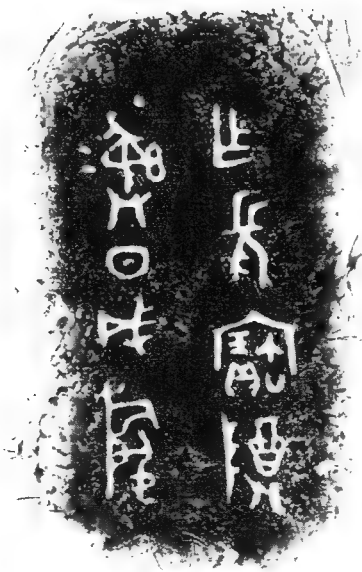 乍長寶尊
彝日戊